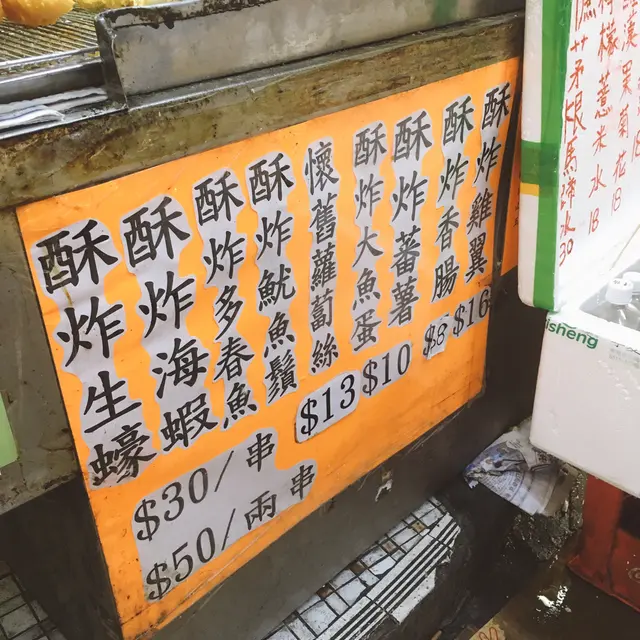 酥炸生蠔
酥炸海蝦
酥炸多春魚
酥炸魷魚鬚
懷舊蘿蔔絲
酥炸大魚蛋
酥炸蕃薯
酥炸香腸
酥炸雞翼
$30/串
$50/兩串
$13
$10
$8
$16
茅根馬蹄水 30
檬薏米水 18
漢果菊花 18
isheng